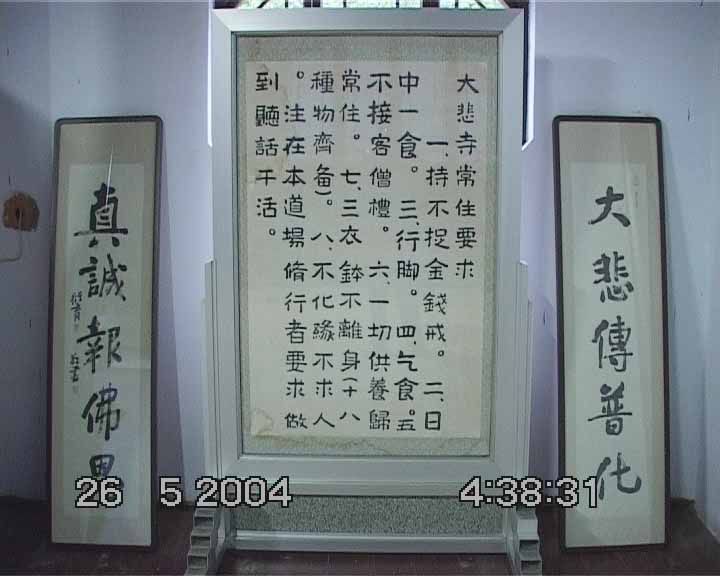 大悲傳普化
大悲寺常住要求
一、持不捉金錢戒。二、日
中一食。三、行脚。四、乞食。五
不接客僧禮。六、一切供養歸
常住。七、三衣鉢不離身(十八
種物齊备)。八、不化緣不求人
。注在本道場脩行者要求做
到聽話干活。
真誠報佛恩
26 5 2004
4:38:31